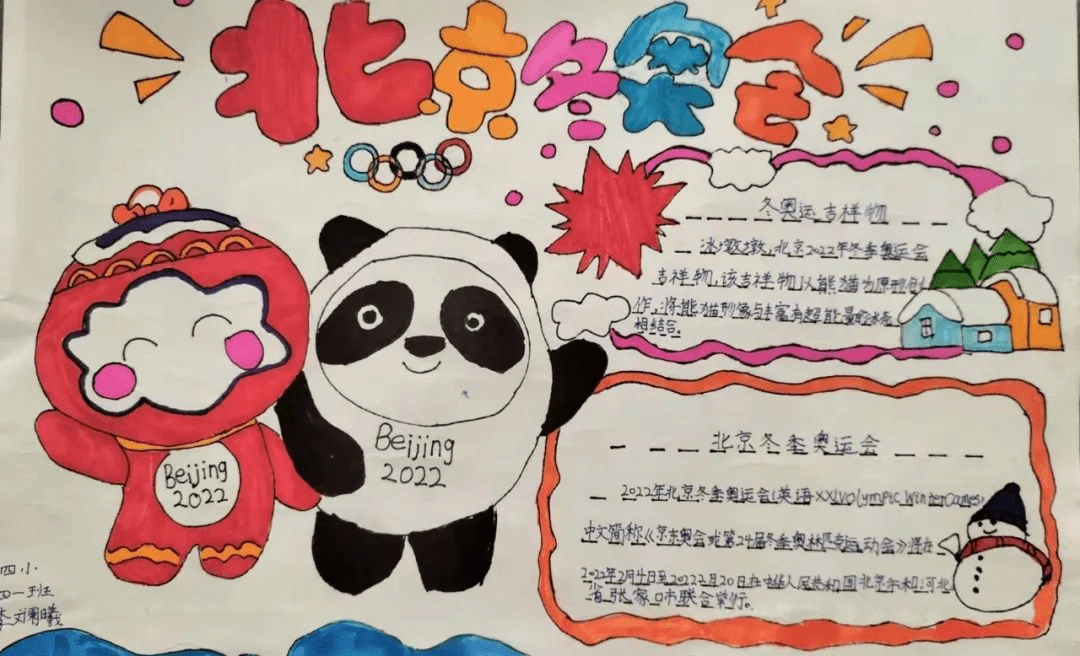 北京冬奥会
冬奥运吉祥物
冰墩墩，北京2022年冬季奥运会
吉祥物，该吉祥物以熊猫为原型创
作，将熊猫形象与丰富有超能量的冰壳
相结合。
Beijing
2022
Beijing
2022
北京冬季奥运会
2022年北京冬季奥运会（英语XXIVOlympic WinterGames，
中文简称《京东奥会或第24届冬季奥林匹克运动会》是在
2022年2月4日至2022 2月20日在中华人民共和国北京市和河北
省张家口市联合举行。
四小
四一班